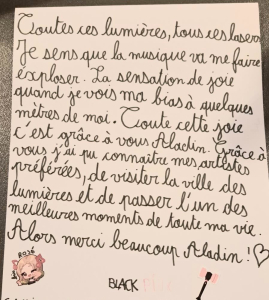 Toutes ces lumières, tous ces lasers
Je sens que la musique va me faire
exploser. La sensation de joie
quand je vois ma bias à quelques
mètres de moi. Toute cette joie
c'est grâce à vous Aladin. Grâce à
vous j'ai pu connaître mes artistes
préférées, de visiter la ville des
lumières et de passer l'un des
meilleures moments de toute ma vie.
Alors merci beaucoup Aladin ! ♡
ROSÉ
BLACK